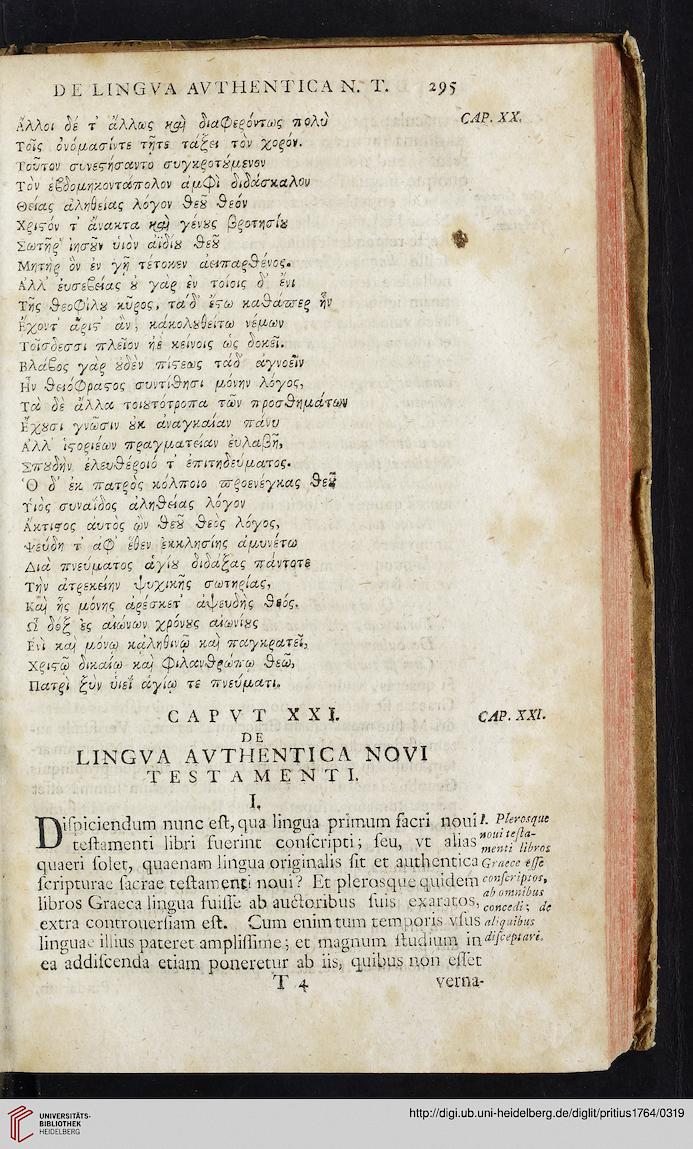 DE LINGVA AVTHENTICA N. T. 295
CAP. XX.
Ἄλλοι δέ τ' ἄλλως καὶ διαφερόντως πολὺ
Τοῖς ὀνόμασίντε τῆτε τάξει τὸν χορόν.
Τοῦτον συνεστήσαντο συγκροτούμενον
Τὸν ἑβδομηκοντάπολον ἀμφὶ διδάσκαλον
Θείας ἀληθείας λόγον θεοῦ θεόν
Χριστόν τ' ἄνακτα καὶ γένους βροτησίου
Σωτῆρ' ἰησοῦν υἱὸν ἀϊδίου θεοῦ
Μητὴρ ὃν ἐν γῇ τέτοκεν ἀειπαρθένος.
Ἀλλ' ἐυσεβείας οὐ γὰρ ἐν τοίοις δ' ἔνι
Τῆς θεοφίλου κῦρος, τάδ' ἔστω καθάπερ ἦν
Ἔχοντ' ἄριστ' ἂν, κἀκολουθείτω νέμων
Τοῖσδεσσι πλεῖον ἠὲ κείνοις ὡς δοκεῖ.
Βλάβος γὰρ οὐδὲν πίστεως τάδ' ἀγνοεῖν
Ἣν θειόφραστος συντίθησι μόνην λόγος,
Τὰ δὲ ἄλλα τοιουτότροπα τῶν προσθημάτων
Ἔχουσι γνῶσιν οὐκ ἀναγκαίαν πάνυ
Ἀλλ' ἱστοριέων πραγματείαν ἐυλαβῆ,
Σπουδήν ἐλευθέροιό τ' ἐπιτηδεύματος.
Ὁ δ' ἐκ πατρὸς κόλποιο προενέγκας θεοῦ
Υἱὸς συναΐδος ἀληθείας λόγον
Ἄκτιστος ἀυτὸς ὢν θεοῦ θεὸς λόγος,
Ψευδῆ τ' ἀφ' ἕθεν ἐκκλησίης ἀμυνέτω
Διὰ πνεύματος ἁγίου διδάξας πάντοτε
Τὴν ἀτρεκείην ψυχικῆς σωτηρίας,
Καὶ ἧς μόνης ἀρέσκετ' ἀψευδὴς θεός.
Ὧ δόξ' ἐς αἰώνων χρόνους αἰωνίους
Ἑνὶ καὶ μόνῳ κἀληθινῷ καὶ παγκρατεῖ,
Χριστῷ δικαίῳ καὶ φιλανθρώπῳ θεῷ,
Πατρὶ ξὺν υἱεῖ ἁγίῳ τε πνεύματι.
CAPVT XXI.
CAP. XXI.
DE
LINGVA AVTHENTICA NOVI
TESTAMENTI.
I.
Dispiciendum nunc est, qua lingua primum sacri noui
testamenti libri fuerint conscripti; seu, vt alias
quaeri solet, quaenam lingua originalis sit et authentica
scripturae sacrae testamenti noui? Et plerosque quidem
libros Graeca lingua fuisse ab auctoribus suis exaratos,
extra controuersiam est. Cum enim tum temporis vsus
linguae illius pateret amplissime; et magnum studium in
ea addiscenda etiam poneretur ab iis, quibus non esset
I. Plerosque
noui testa-
menti libros
Graece esse
conscriptos,
ab omnibus
concedi; de
aliquibus
disceptari.
T 4 verna-
UNIVERSITÄTS-
BIBLIOTHEK
HEIDELBERG
http://digi.ub.uni-heidelberg.de/diglit/pritius1764/0319